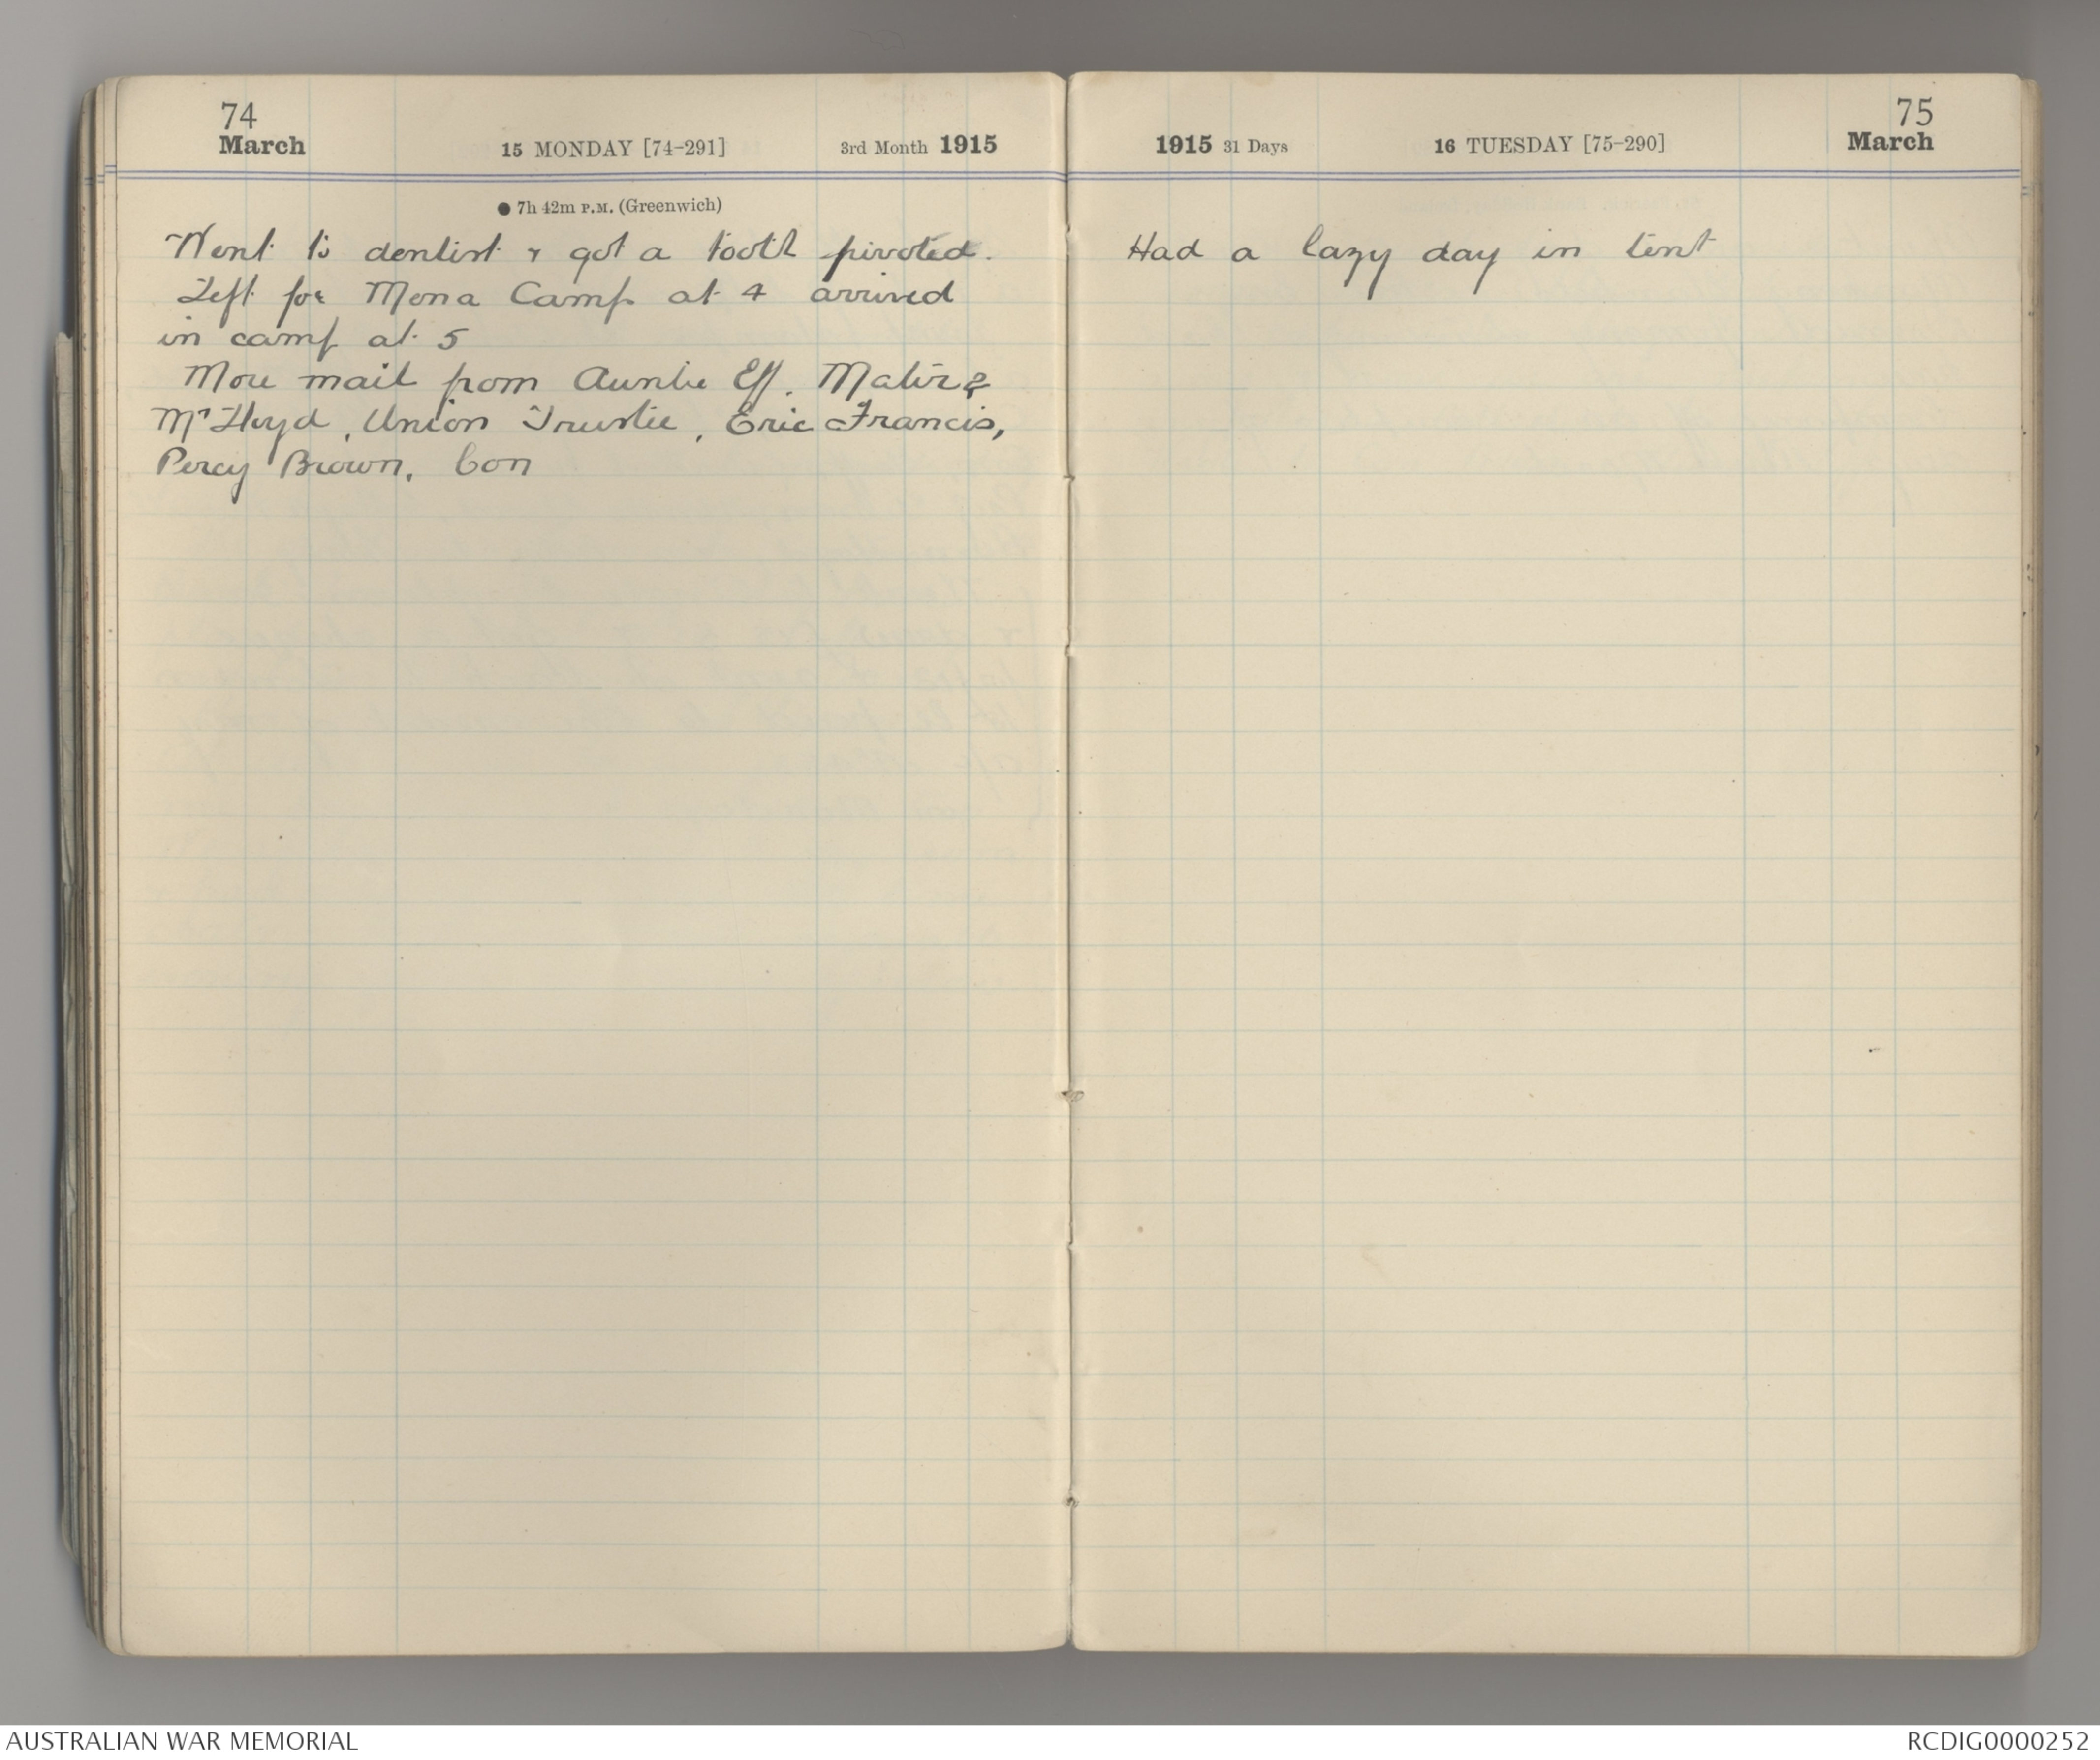 74
March
15 MONDAY [74-291]
3rd Month 1915
● 7h 42m P.M. (Greenwich)
Went to dentist & got a tooth pivoted.
Left for Mena Camp at 4 arrived
in camp at 5
More mail from Auntie Eff. Mater 2
Mr Lloyd, Union Trustee, Eric Francis,
Percy Brown. Con
75
1915 31 Days
16 TUESDAY [75-290]
March
Had a lazy day in tent
AUSTRALIAN WAR MEMORIAL
RCDIG0000252